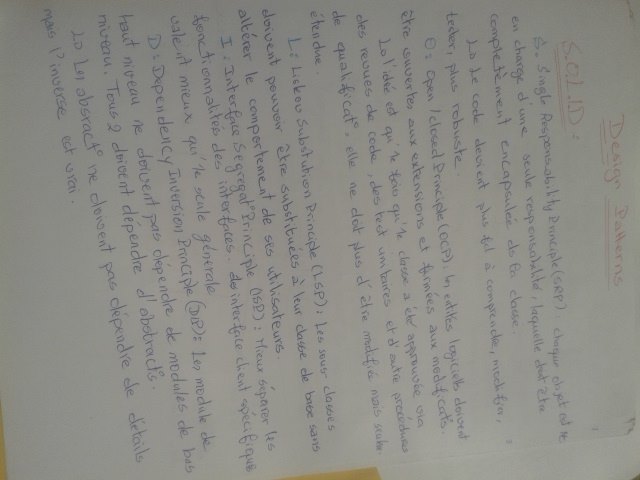 Design Patterns
S.O.L.I.D :
S : Single Responsability Principle (SRP) : chaque objet est
en charge d'une seule responsabilité, laquelle doit être
complètement encapsulée ds la classe.
↳ Le code devient plus à comprendre, modifier,
tester, plus robuste.
O : Open / closed Principle (OCP) : les entités logiciels doivent
être ouvertes aux extensions et fermées aux modificat°.
↳ l'idée est qu'1e fois qu'1e classe a été approuvée via
des revues de code, des test unitaires et d'autre procédures
de qualificat°, elle ne doit plus d'être modifiée mais seulem.
étendue.
L : Liskov Substution Principle (LSP) : Les sous-classes
doivent pouvoir être substituées à leur classe de base sans
altérer le comportement de ses utilisateurs.
I : Interface Segregat° Principle (ISP) : Mieux séparer les
fonctionnalités des interfaces. des interface client spécifique
vale nt mieux qu'1e seule générale
D : Dependency Inversion Principle (DIP) : Les module de
haut niveau ne doivent pas dépendre de modules de bas
niveau. Tous 2 doivent dépendre d'abstract°s.
↳ Les abstract° ne doivent pas dépendre de détails
mais l'inverse est vrai.